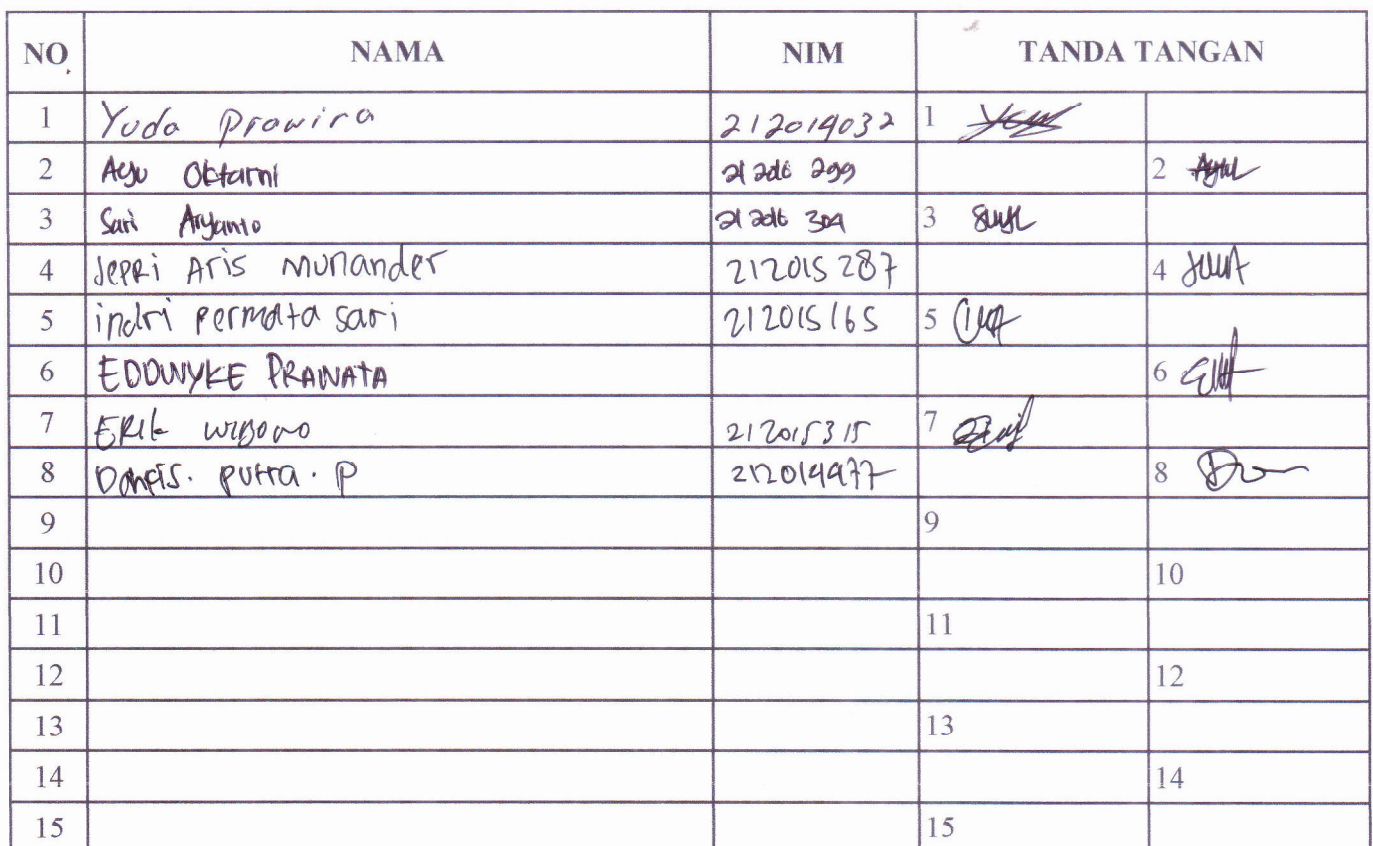 NO NAMA NIM TANDA TANGAN
1 Yuda Prawira 212014032 1
2 Ayu Oktarni 2
3 Sari Aryanto 3
4 Jepri Aris Munander 212015 287 4
5 indri permata sari 212015165 5
6 EDDWYKE PRANATA 6
7 ERIK wibowo 212015315 7
8 putra. P 212014977 8
9 9
10 10
11 11
12 12
13 13
14 14
15 15